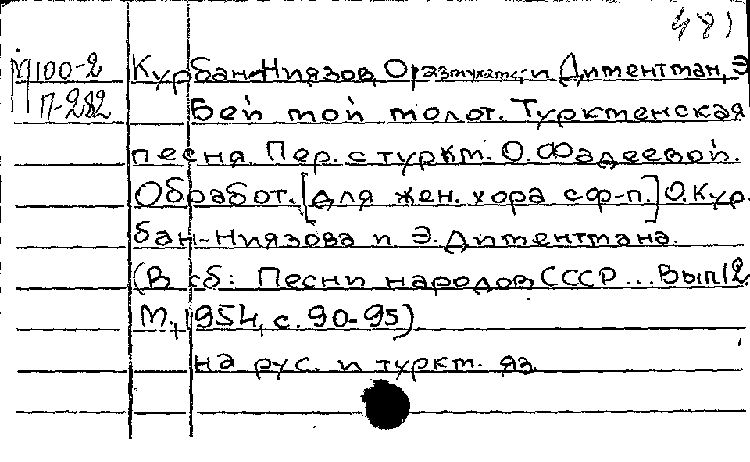 481
М100-2 Курбан-Ниязов, О. и Диментман, Э.
П-282 Бей мой молот. Туркменская
песня. Пер. с туркм. О. Фадеевой.
Обработ. [для жен. хора с ф-п.] О. Кур
бан-Ниязова и Э. Диментмана.
(В сб: Песни народов СССР... Вып12.
М., 1954, с. 90-95)
на рус. и туркм. яз.